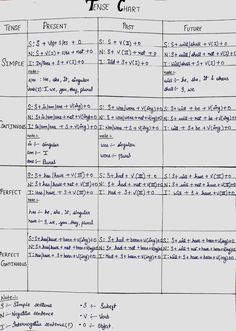 TENSE CHART
TENSE PRESENT PAST FUTURE
SIMPLE
S: S + V(I) + s/es + O
I: Do/Does + S + V(I) + O
Note :-
Does :- He, she, it, singular
S: S + V(II) + O
I: Did + S + V(I) + O
S: S + will/shall + V(I) + O
N: S + will/shall + not + V(I) + O
I: Will/shall + S + V(I) + O
Note :-
will :- he, she, it & others
shall :- I, we
CONTINUOUS
S: S + is/am/are + V(ing) + O
N: S + is/am/are + not + V(ing) + O
I: Is/am/are + S + V(ing) + O
Note :-
is :- singular
am :- I
are :- plural
S: S + was/were + V(ing) + O
N: S + was/were + not + V(ing) + O
I: Was/were + S + V(ing) + O
Note :-
was :- singular
were :- plural
S: S + will + be + V(ing) + O
N: S + will + not + be + V(ing) + O
I: Will + S + be + V(ing) + O
PERFECT
S: S + has/have + V(III) + O
N: S + has/have + not + V(III) + O
I: Has/have + S + V(III) + O
has :- he, she, it, singular
have :- I, we, you, they, plural
S: S + had + V(III) + O
N: S + had + not + V(III) + O
I: Had + S + V(III) + O
S: S + will + have + V(III) + O
N: S + will + not + have + V(III) + O
I: Will + S + have + V(III) + O
PERFECT CONTINUOUS
S: S + has/have + been + V(ing) + O
N: S + has/have + not + been + V(ing) + O
I: Has/have + S + been + V(ing) + O
S: S + had + been + V(ing) + O
N: S + had + not + been + V(ing) + O
I: Had + S + been + V(ing) + O
S: S + will + have + been + V(ing) + O
N: S + will + not + have + been + V(ing) + O
I: Will + S + have + been + V(ing) + O
Note :-
S :- Simple sentence
N :- Negative sentence
I :- Interrogative sentence(?)
• S :- Subject
• V :- Verb
• O :- Object.